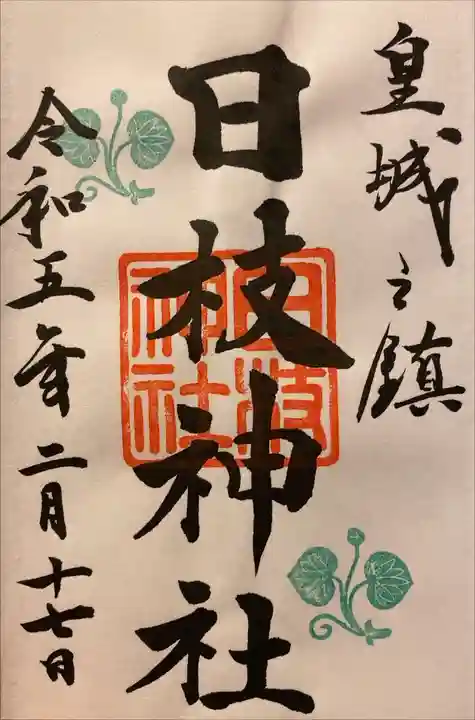 皇城之鎮
日枝神社
日枝神社
令和五年二月十七日